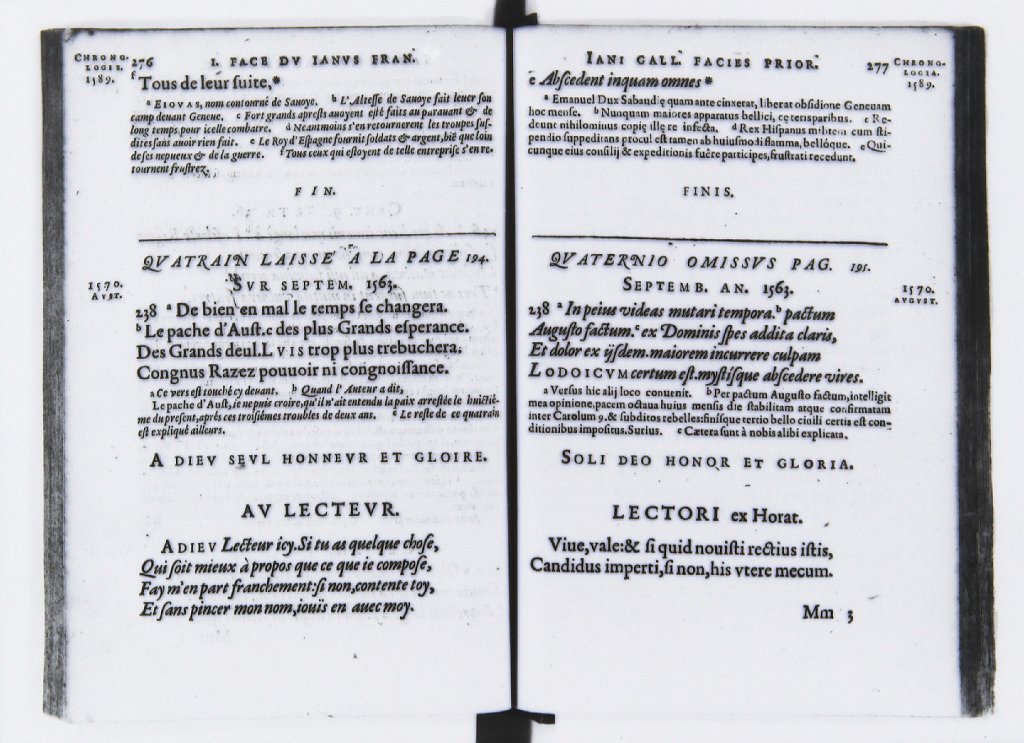 CHRONO-
LOGIE.
1589.
276 I. FACE DV IANVS FRAN.
f Tous de leur suite,*
a EIOVAS, nom contourné de Sauoye. b L'Altesse de Sauoye fait leuer son
camp deuant Geneue. c Fort grands aprests auoyent esté faits au parauant & de
long temps pour icelle combatre. d Neantmoins s'en retournerent les troupes sus-
dites sans auoir rien fait. e Le Roy d'Espagne fournit soldats & argent, biē que loin
de ses nepueux & de la guerre. f Tous ceux qui estoyent de telle entreprise s'en re-
tournent frustrez.
FIN.
QVATRAIN LAISSE A LA PAGE 194.
1570.
AVST.
SVR SEPTEM. 1563.
238 a De bien en mal le temps se changera.
b Le pache d'Aust. c des plus Grands esperance.
Des Grands deul. LVIS trop plus trebuchera.
Congnus Razez pouuoir ni congnoissance.
a Ce vers est touché cy deuant. b Quand l'Auteur a dit,
Le pache d'Aust, ie ne puis croire, qu'il n'ait entendu la paix arrestée le huictiè-
me du present, aprés ces troisiémes troubles de deux ans. c Le reste de ce quatrain
est expliqué ailleurs.
A DIEV SEVL HONNEVR ET GLOIRE.
AV LECTEVR.
ADIEV Lecteur icy. Si tu as quelque chose,
Qui soit mieux à propos que ce que ie compose,
Fay m'en part franchement: si non, contente toy,
Et sans pincer mon nom, iouïs en auec moy.
IANI GALL. FACIES PRIOR. 277
CHRONO-
LOGIA.
1589.
e Abscedent inquam omnes*
a Emanuel Dux Sabaudię quam ante cinxerat, liberat obsidione Geneuam
hoc mense. b Nunquam maiores apparatus bellici, cę teris paribus. c Re-
deunt nihilominus copię illę re infecta. d Rex Hispanus militem cum sti-
pendio suppeditans procul est tamen ab huiusmodi flamma, bellóque. e Qui-
cunque eius consilij & expeditionis fuêre participes, frustrati recedunt.
FINIS.
QVATERNIO OMISSVS PAG. 195.
SEPTEMB. AN. 1563.
1570.
AVGVST.
238 a In peius videas mutari tempora. b pactum
Augusto factum. c ex Dominis spes addita claris,
Et dolor ex ijsdem. maiorem incurrere culpam
LODOICVM certum est. mystisque abscedere vires.
a Versus hic alij loco conuenit. b Per pactum Augusto factum, intelligit
mea opinione, pacem octaua huius mensis die stabilitam atque confirmatam
inter Carolum 9. & subditos rebelles: finisque tertio bello ciuili certis est con-
ditionibus impositus. Surius. c Cætera sunt à nobis alibi explicata.
SOLI DEO HONOR ET GLORIA.
LECTORI ex Horat.
Viue, vale: & si quid nouisti rectius istis,
Candidus imperti, si non, his vtere mecum.
Mm 3